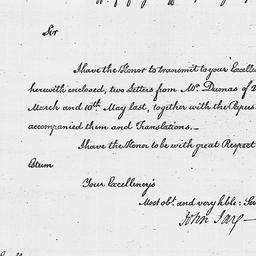 Sir
I have the Honor to transmit to your Excelle
herewith enclosed, two Letters from Mr. Dumas of
March and 10th. May last, together with the Papers
accompanied them and Translations._
I have the Honor to be with great Respect
Esteem
Your Excellency's
Most obt. and very hble: Ser
John Jay